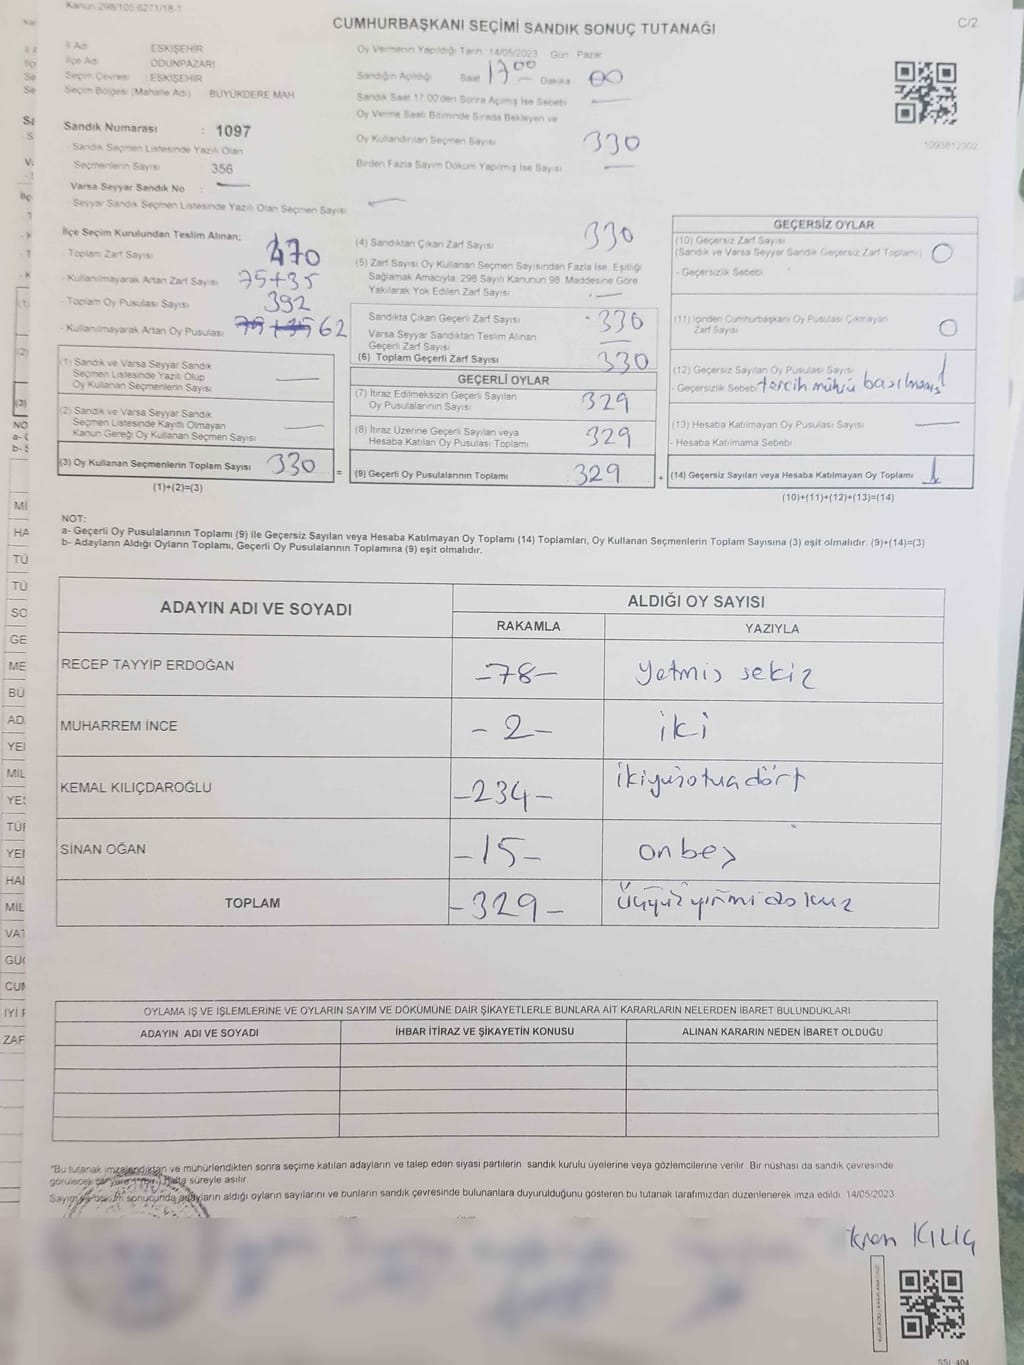 Kanun 298/105 6271/18-1
CUMHURBAŞKANI SEÇİMİ SANDIK SONUÇ TUTANAĞI
C/2
İl Adı ESKİŞEHİR
İlçe Adı ODUNPAZARI
Seçim Çevresi : ESKİŞEHİR
Seçim Bölgesi (Mahalle Adı) BÜYÜKDERE MAH
Oy Vermenin Yapıldığı Tarih 14/05/2023 Gün Pazar
Sandığın Açıldığı Saat 17 00 Dakika 00
Sandık Saat 17:00'den Sonra Açımış İse Sebebi
Oy Verme Saati Bitiminde Sırada Bekleyen ve
Oy Kullandırılan Seçmen Sayısı 330
Birden Fazla Sayım Döküm Yapılmış İse Sayısı —
1093812302
Sandık Numarası : 1097
Sandık Seçmen Listesinde Yazılı Olan
Seçmenlerin Sayısı 356
Varsa Seyyar Sandık No : —
Seyyar Sandık Seçmen Listesinde Yazılı Olan Seçmen Sayısı —
İlçe Seçim Kurulundan Teslim Alınan;
- Toplam Zarf Sayısı 470
- Kullanılmayarak Artan Zarf Sayısı 75+35
- Toplam Oy Pusulası Sayısı 392
- Kullanılmayarak Artan Oy Pusulası 62
(1) Sandık ve Varsa Seyyar Sandık
Seçmen Listesinde Yazılı Olup
Oy Kullanan Seçmenlerin Sayısı —
(2) Sandık ve Varsa Seyyar Sandık
Seçmen Listesinde Kayıtlı Olmayan
Kanun Gereği Oy Kullanan Seçmen Sayısı —
(3) Oy Kullanan Seçmenlerin Toplam Sayısı 330
(1)+(2)=(3)
=
(4) Sandıktan Çıkan Zarf Sayısı 330
(5) Zarf Sayısı Oy Kullanan Seçmen Sayısından Fazla İse, Eşitliği
Sağlamak Amacıyla, 298 Sayılı Kanunun 98. Maddesine Göre
Yakılarak Yok Edilen Zarf Sayısı —
Sandıkta Çıkan Geçerli Zarf Sayısı 330
Varsa Seyyar Sandıktan Teslim Alınan
Geçerli Zarf Sayısı —
(6) Toplam Geçerli Zarf Sayısı 330
GEÇERLİ OYLAR
(7) İtiraz Edilmeksizin Geçerli Sayılan
Oy Pusulalarının Sayısı 329
(8) İtiraz Üzerine Geçerli Sayılan veya
Hesaba Katılan Oy Pusulası Toplamı 329
(9) Geçerli Oy Pusulalarının Toplamı 329
+
GEÇERSİZ OYLAR
(10) Geçersiz Zarf Sayısı
(Sandık ve Varsa Seyyar Sandık Geçersiz Zarf Toplamı) 0
- Geçersizlik Sebebi
(11) İçinden Cumhurbaşkanı Oy Pusulası Çıkmayan
Zarf Sayısı 0
(12) Geçersiz Sayılan Oy Pusulası Sayısı 1
- Geçersizlik Sebebi tercih mührü basılmamış
(13) Hesaba Katılmayan Oy Pusulası Sayısı —
- Hesaba Katılmama Sebebi
(14) Geçersiz Sayılan veya Hesaba Katılmayan Oy Toplamı 1
(10)+(11)+(12)+(13)=(14)
NOT:
a- Geçerli Oy Pusulalarının Toplamı (9) ile Geçersiz Sayılan veya Hesaba Katılmayan Oy Toplamı (14) Toplamları, Oy Kullanan Seçmenlerin Toplam Sayısına (3) eşit olmalıdır. (9)+(14)=(3)
b- Adayların Aldığı Oyların Toplamı, Geçerli Oy Pusulalarının Toplamına (9) eşit olmalıdır.
ADAYIN ADI VE SOYADI ALDIĞI OY SAYISI
RAKAMLA YAZIYLA
RECEP TAYYİP ERDOĞAN -78- yetmiş sekiz
MUHARREM İNCE -2- iki
KEMAL KILIÇDAROĞLU -234- ikiyüzotuzdört
SİNAN OĞAN -15- onbeş
TOPLAM -329- üçyüzyirmidokuz
OYLAMA İŞ VE İŞLEMLERİNE VE OYLARIN SAYIM VE DÖKÜMÜNE DAİR ŞİKAYETLERLE BUNLARA AİT KARARLARIN NELERDEN İBARET BULUNDUKLARI
ADAYIN ADI VE SOYADI İHBAR İTİRAZ VE ŞİKAYETİN KONUSU ALINAN KARARIN NEDEN İBARET OLDUĞU
*Bu tutanak imzalandıktan ve mühürlendikten sonra seçime katılan adayların ve talep eden siyasi partilerin sandık kurulu üyelerine veya gözlemcilerine verilir. Bir nüshası da sandık çevresinde
görülecek bir yere 1 hafta süreyle asılır.
Sayım ve döküm sonucunda adayların aldığı oyların sayılarını ve bunların sandık çevresinde bulunanlara duyurulduğunu gösteren bu tutanak tarafımızdan düzenlenerek imza edildi. 14/05/2023
KILIÇ
SSI 404
MİL
HA
TÜ
TÜ
SO
GE
ME
BÜ
AD
YEI
MİL
YES
TÜF
YEI
HAI
MİL
VAT
GÜÇ
CUM
İYİ F
ZAF